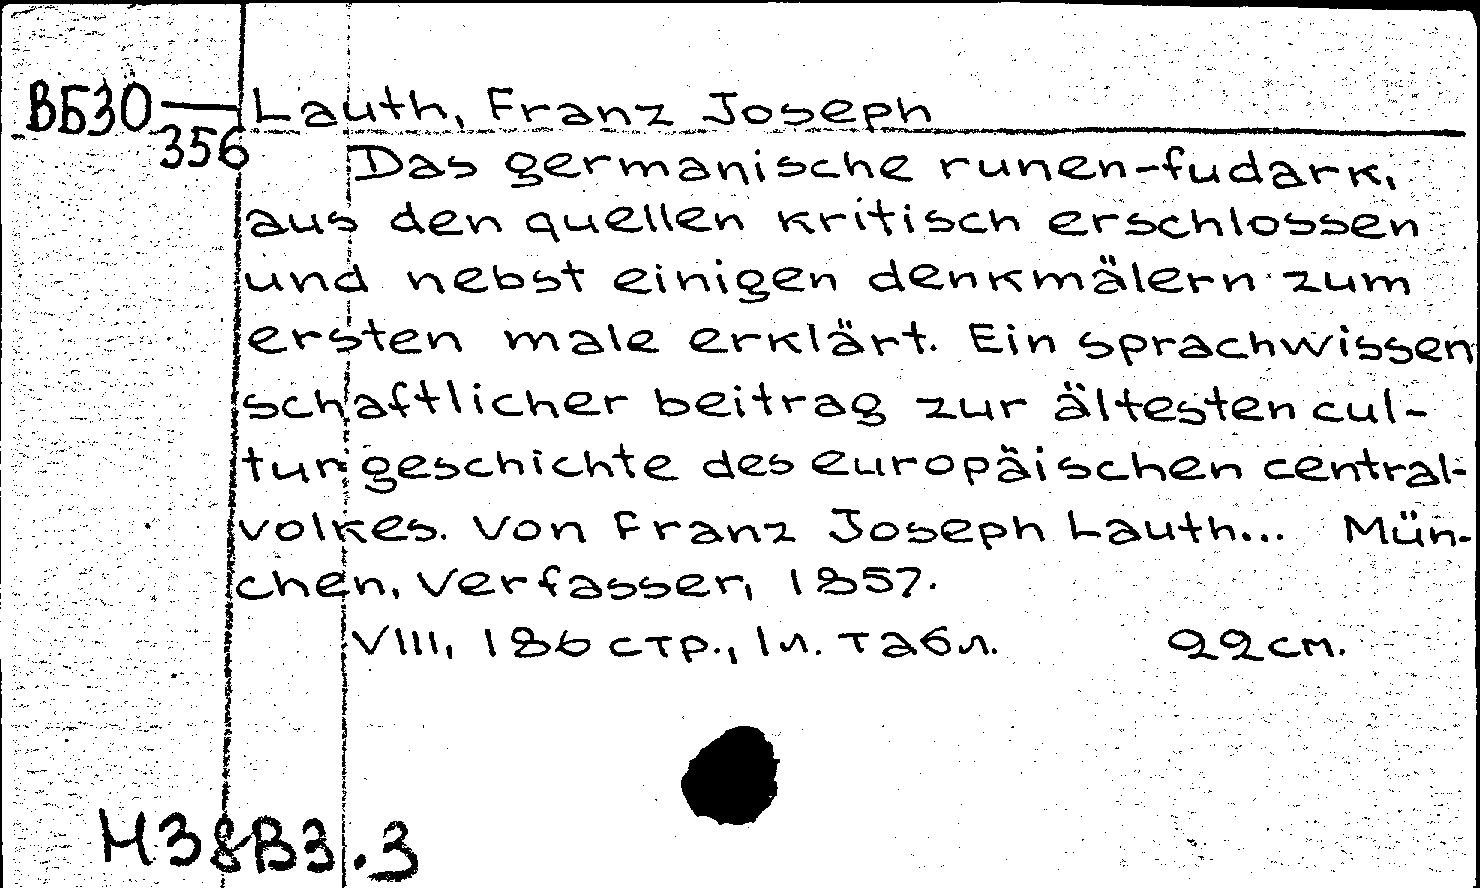 ВБ30 — Lauth, Franz Joseph
356 Das germanische runen-fudark,
aus den quellen kritisch erschlossen
und nebst einigen denkmälern zum
ersten male erklärt. Ein sprachwissen
schaftlicher beitrag zur ältesten cul-
turgeschichte des europäischen central-
volkes. Von Franz Joseph Lauth... Mün-
chen, Verfasser, 1857.
VIII, 186 стр., 1 л. табл. 22 см.
Н38В3.3